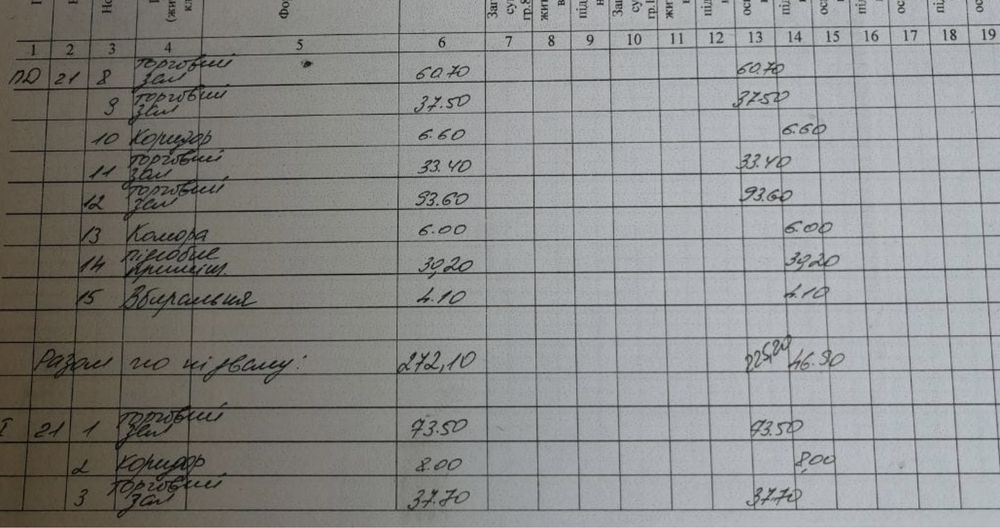 1 2 3 4 5 6 7 8 9 10 11 12 13 14 15 16 17 18 19
ПД 21 8 торговий зал 60.70 60.70
9 торговий зал 37.50 37.50
10 коридор 6.60 6.60
11 торговий зал 33.40 33.40
12 торговий зал 93.60 93.60
13 Комора 6.00 6.00
14 підсобне приміщ. 30,20 30,20
15 Вбиральня 4.10 4.10
Разом по підвалу: 272,10 225,20 46.90
I 21 1 торговий зал 73.50 73.50
2 коридор 8.00 8,00
3 торговий зал 37.70 37.70